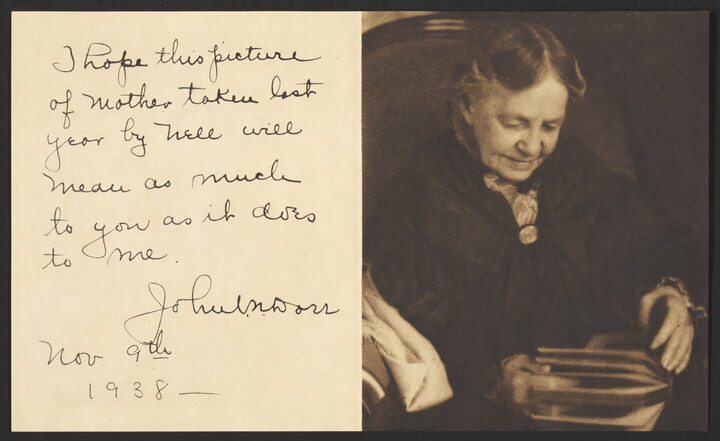 I hope this picture
of Mother taken last
year by Nell will
mean as much
to you as it does
to me.
John V.N. Dorr
Nov 9th
1938 —